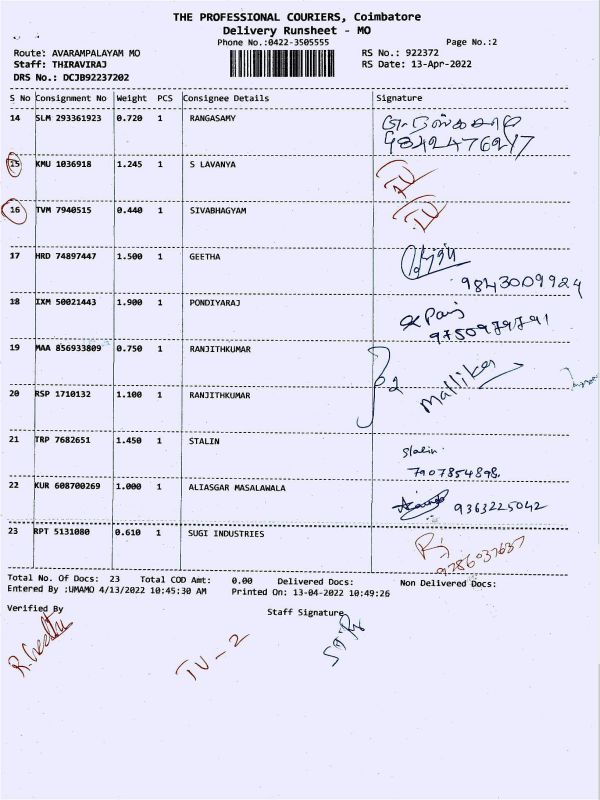 THE PROFESSIONAL COURIERS, Coimbatore
Delivery Runsheet - MO
Phone No.:0422-3505555 Page No.:2
Route: AVARAMPALAYAM MO RS No.: 922372
Staff: THIRAVIRAJ RS Date: 13-Apr-2022
DRS No.: DCJB92237202
S No Consignment No Weight PCS Consignee Details Signature
14 SLM 293361923 0.720 1 RANGASAMY
9842476247
15 KMU 1036918 1.245 1 S LAVANYA IV
16 TVM 7940515 0.440 1 SIVABHAGYAM IV
17 HRD 74897447 1.500 1 GEETHA
9843009924
18 IXM 50021443 1.900 1 PONDIYARAJ
9750979791
19 MAA 856933809 0.750 1 RANJITHKUMAR
2 Mallika
20 RSP 1710132 1.100 1 RANJITHKUMAR
21 TRP 7682651 1.450 1 STALIN Stalin.
7907854898.
22 KUR 608700269 1.000 1 ALIASGAR MASALAWALA 9363225042
23 RPT 5131080 0.610 1 SUGI INDUSTRIES
9786037637
Total No. Of Docs: 23 Total COD Amt: 0.00 Delivered Docs: Non Delivered Docs:
Entered By :UMAMO 4/13/2022 10:45:30 AM Printed On: 13-04-2022 10:49:26
Verified By Staff Signature
R. Geetha
IV - 2